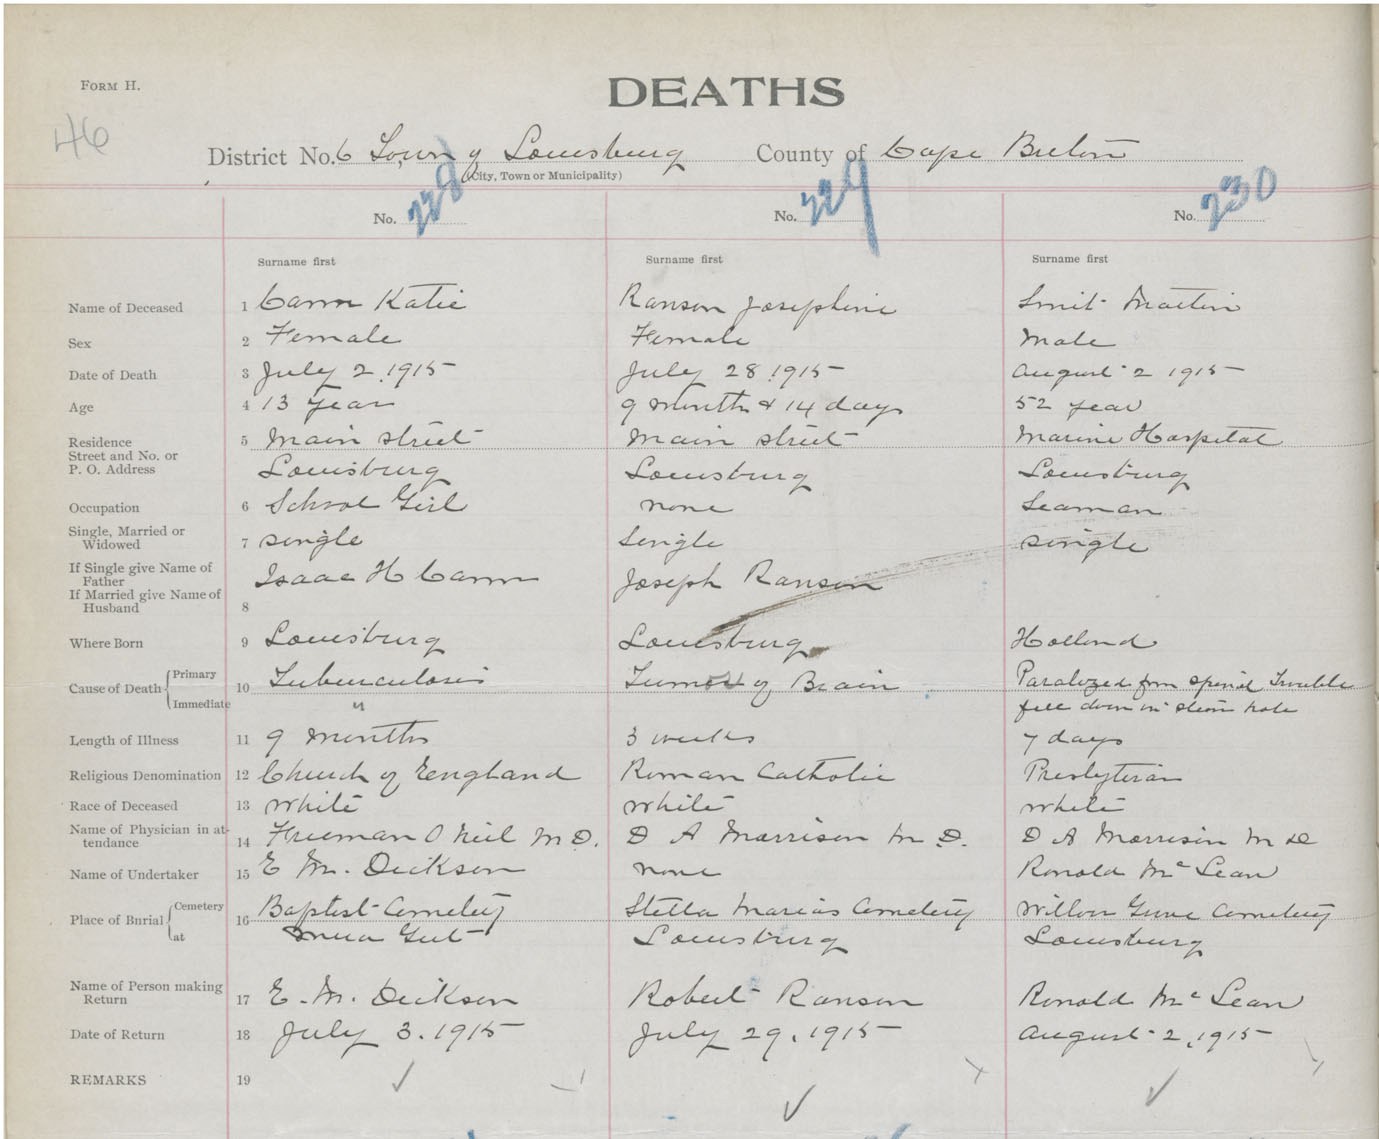 FORM H.
DEATHS
46
District No. 6 Town of Louisburg County of Cape Breton
(City, Town or Municipality)
No. 228 No. 229 No. 230
Surname first Surname first Surname first
Name of Deceased 1 Cann Katie Ranson Josephine Smit Martin
Sex 2 Female Female Male
Date of Death 3 July 2, 1915 July 28, 1915 August 2 1915
Age 4 13 year 9 months & 14 days 52 year
Residence 5 Main street Main street Marine Hospital
Street and No. or
P. O. Address Louisburg Louisburg Louisburg
Occupation 6 School Girl none Seaman
Single, Married or
Widowed 7 single Single single
If Single give Name of
Father Isaac H Cann Joseph Ranson
If Married give Name of
Husband 8
Where Born 9 Louisburg Louisburg Holland
Cause of Death Primary 10 Tuberculosis Tumor of Brain Paralozed from spinal Trouble
Immediate " fell down in hole
Length of Illness 11 9 months 3 weeks 7 days
Religious Denomination 12 Church of England Roman Catholic Presbyterian
Race of Deceased 13 white white white
Name of Physician in at-
tendance 14 Freeman O Neil M D. D A Morrison M D. D A Morrison M D
Name of Undertaker 15 E M. Dickson none Ronald Mc Lean
Place of Burial Cemetery 16 Baptist Cemetery Stella Marias Cemetery Willow Grove Cemetery
at Mira Gut Louisburg Louisburg
Name of Person making
Return 17 E. M. Dickson Robert Ranson Ronald Mc Lean
Date of Return 18 July 3. 1915 July 29, 1915 August 2, 1915
REMARKS 19